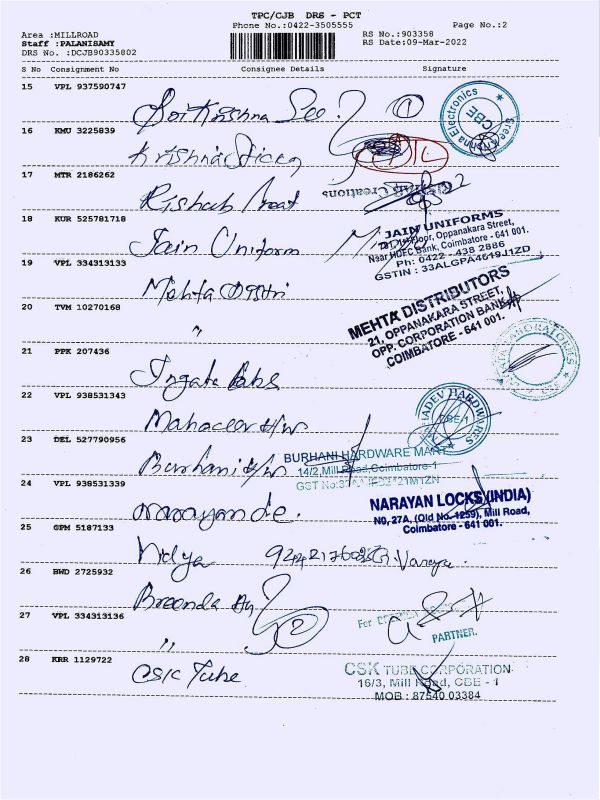 TPC/CJB DRS - PCT
Phone No.:0422-3505555
Page No.:2
Area :MILLROAD
RS No.:903358
Staff :PALANISAMY
RS Date:09-Mar-2022
DRS No. :DCJB90335802
S No Consignment No Consignee Details Signature
15 VPL 937590747
Sri Krishna 1
Electronics CBE
16 KMU 3225839
Krishna
17 MTR 2186262
Creations
Rishab 2
18 KUR 525781718
Jain Uniform
JAIN UNIFORMS
Floor, Oppanakara Street,
Near HDFC Bank, Coimbatore - 641 001.
Ph: 0422 - 438 2886
GSTIN : 33ALGPA4619J1ZD
19 VPL 334313133
Mehta
20 TVM 10270168
"
MEHTA DISTRIBUTORS
21, OPPANAKARA STREET,
OPP. CORPORATION BANK
COIMBATORE - 641 001.
21 PPK 207436
LABORATORIES
22 VPL 938531343
Mahaveer H/W
HARDWARES CBE-1
23 DEL 527790956
Burhani H/W
BURHANI HARDWARE MART
14/2, Mill Road, Coimbatore-1
24 VPL 938531339
Narayan
NARAYAN LOCKS (INDIA)
N0, 27A, (Old No. 1259), Mill Road,
Coimbatore - 641 001.
25 GPM 5187133
Vidya
26 BWD 2725932
27 VPL 334313136
" 2
For
PARTNER.
28 KRR 1129722
CSK Tube
CSK TUBE CORPORATION
16/3, Mill Road, CBE - 1
MOB : 87540 03384